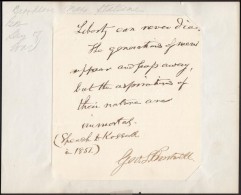 Liberty can never die.
The generations of men
appear and pass away,
but the aspirations of
their nature are
immortal.
(Speech to Kossuth
in 1851)
Geo S Boutwell